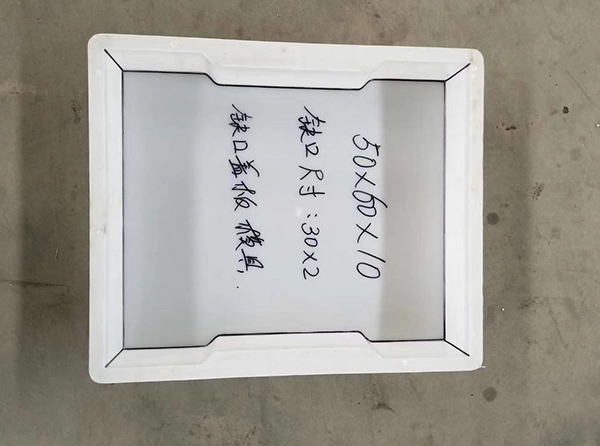 50×60×10
缺口尺寸:30×2
缺口盖板模具.